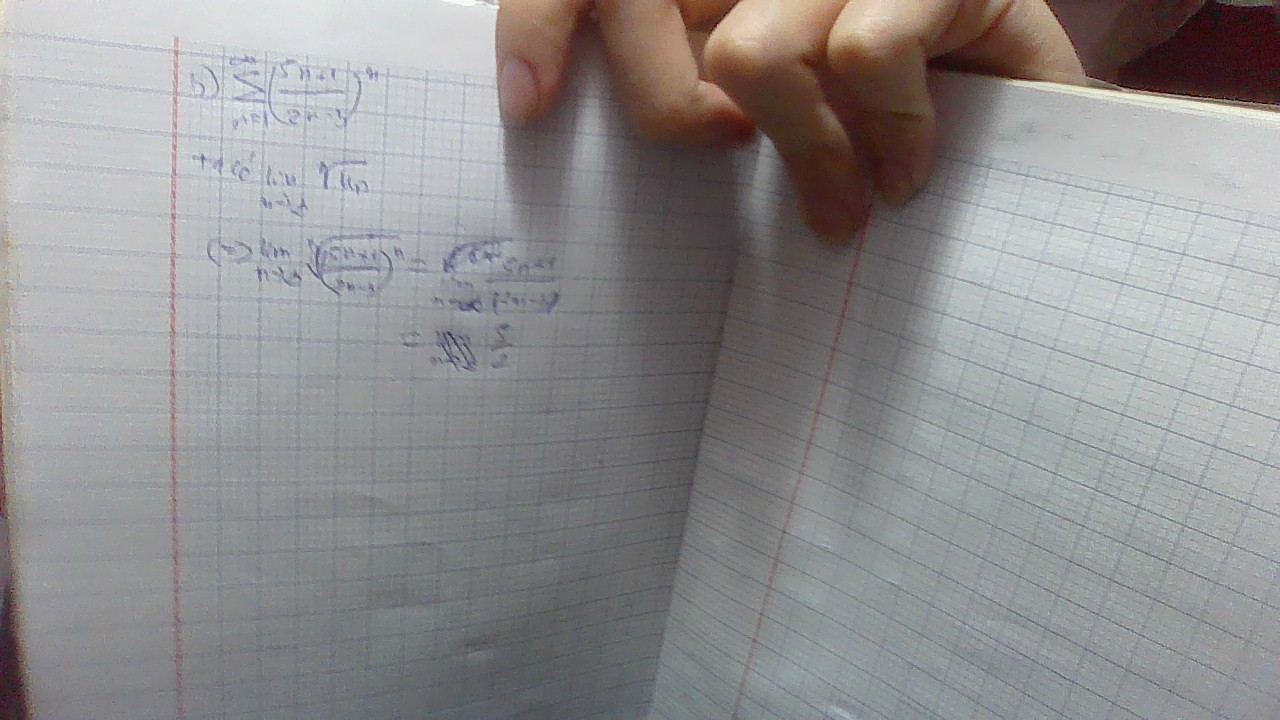 b) ∑_{n=1}^{∞} ((5n+1)/(2n-3))^n
lim_{n→∞} ⁿ√u_n
(=) lim_{n→∞} ⁿ√((5n+1)/(2n-3))^n = lim_{n→∞} (5n+1)/(2n-3)
= 5/2